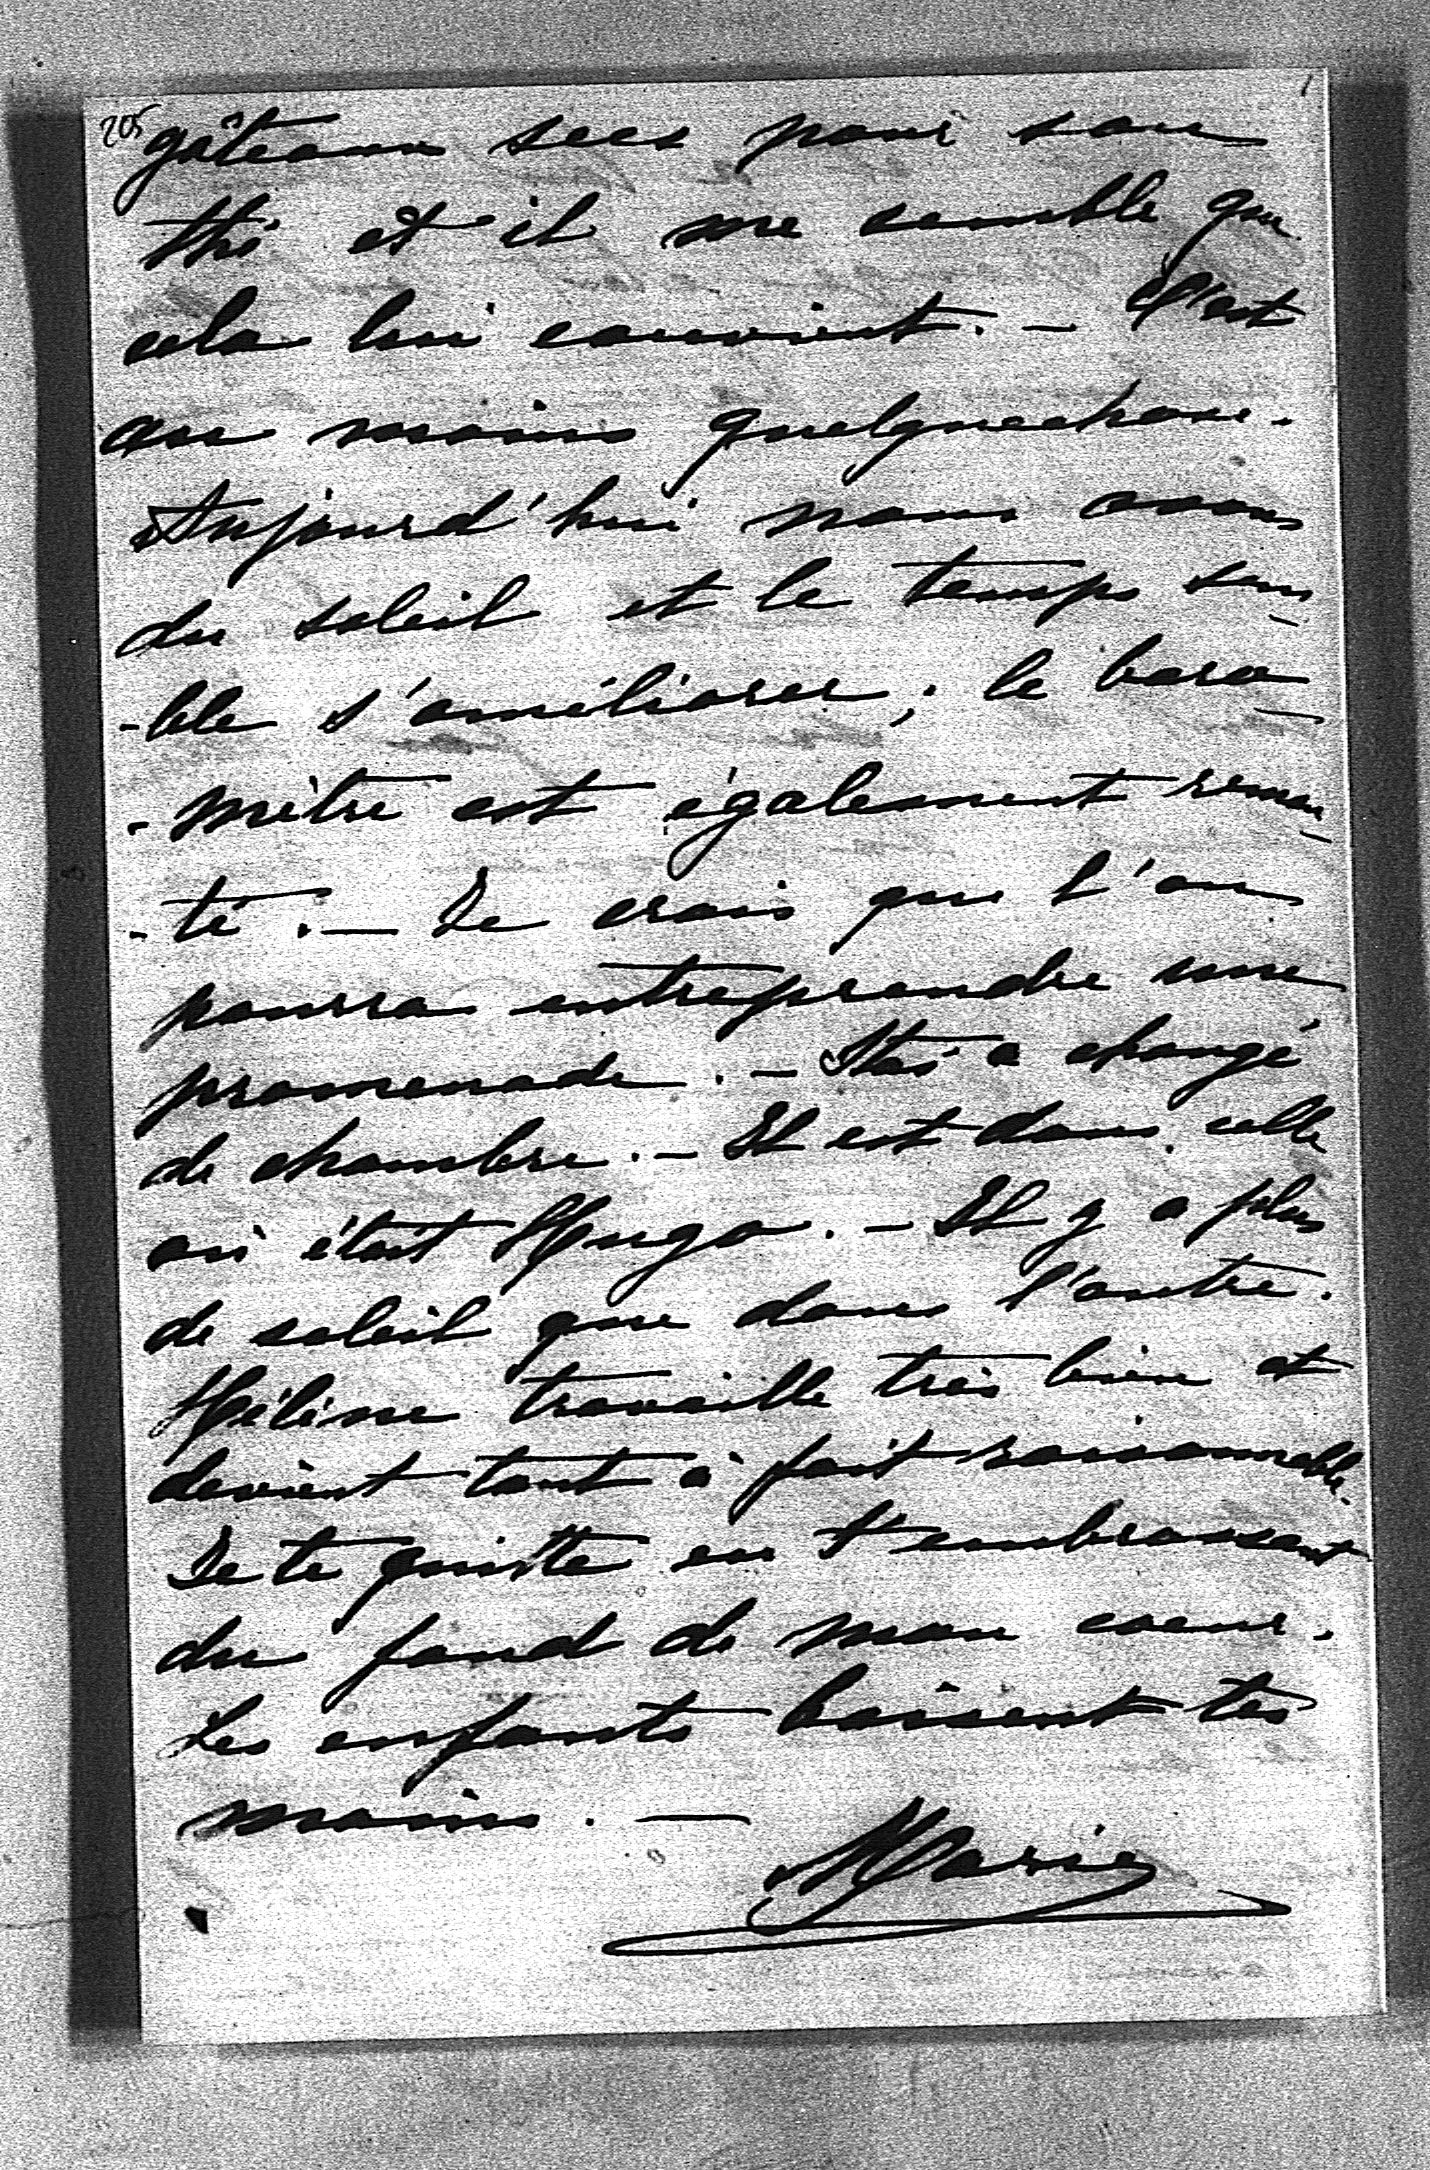 205
gâteaux secs pour son
thé et il me semble que
cela lui convient. — C'est
au moins quelquechose.
Aujourd'hui nous avons
du soleil et le temps sem-
-ble s'améliorer; le baro-
-mètre est également remon-
-té. — Je crois que l'on
pourra entreprendre une
promenade. — Stas a changé
de chambre. — Il est dans celle
où était Hugo. — Il y a plus
de soleil que dans l'autre.
Hélène travaille très bien et
devient tout à fait raisonnable.
Je te quitte en t'embrassant
du fond de mon coeur.
Les enfants baisent tes
mains. —
Marie